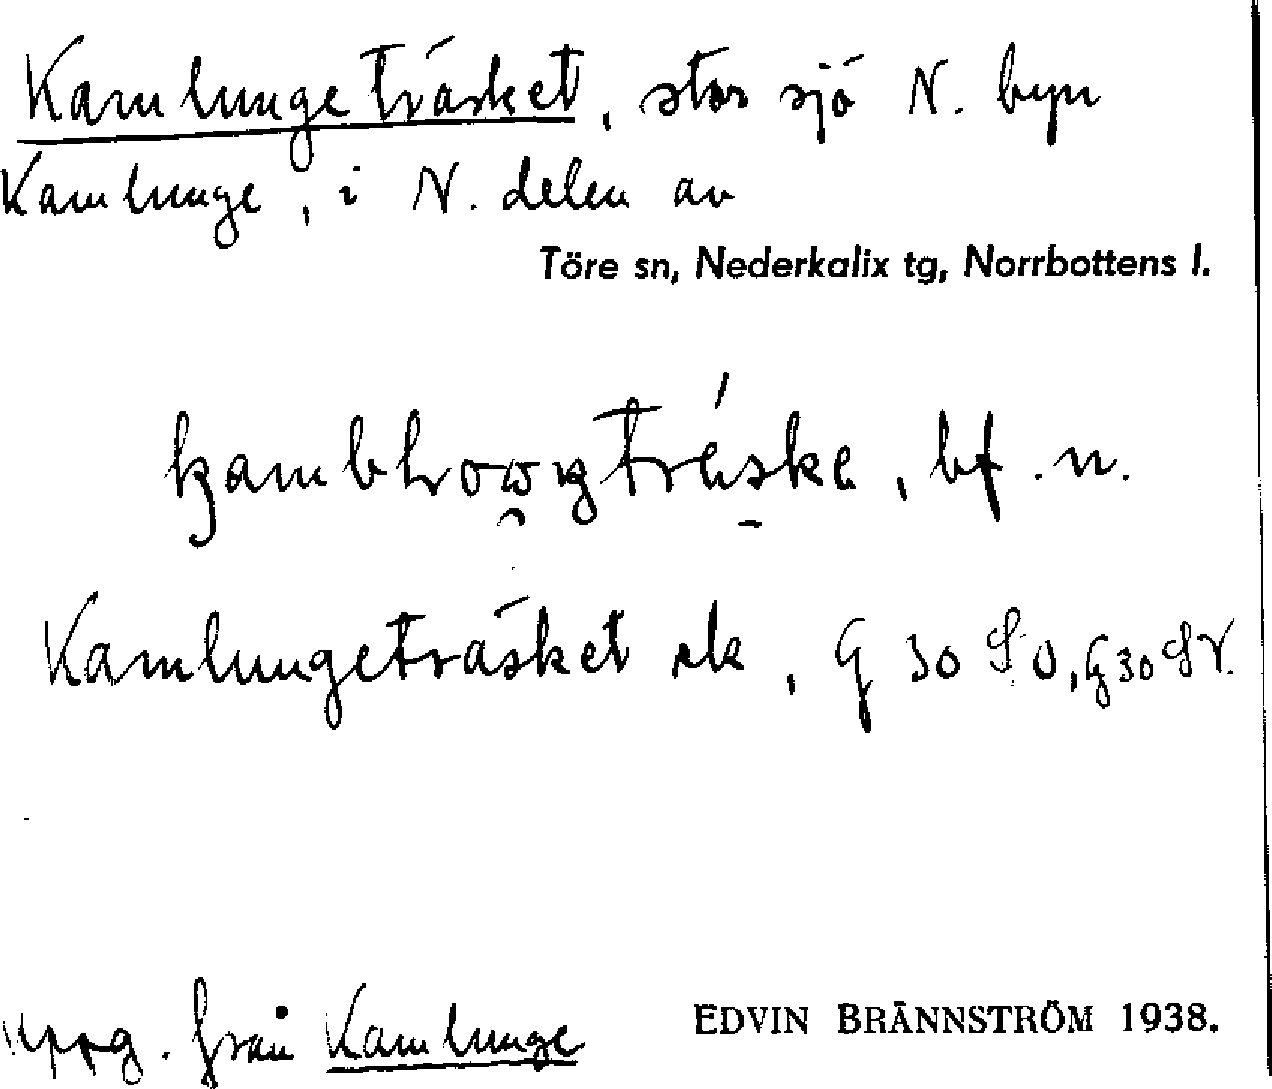 Kamlungeträsket, stor sjö N. byn
Kamlunge, i N. delen av
Töre sn, Nederkalix tg, Norrbottens l.
bf. n.
Kamlungeträsket ek, G 30 SO, G 30 SV.
uppg. från Kamlunge
EDVIN BRÄNNSTRÖM 1938.